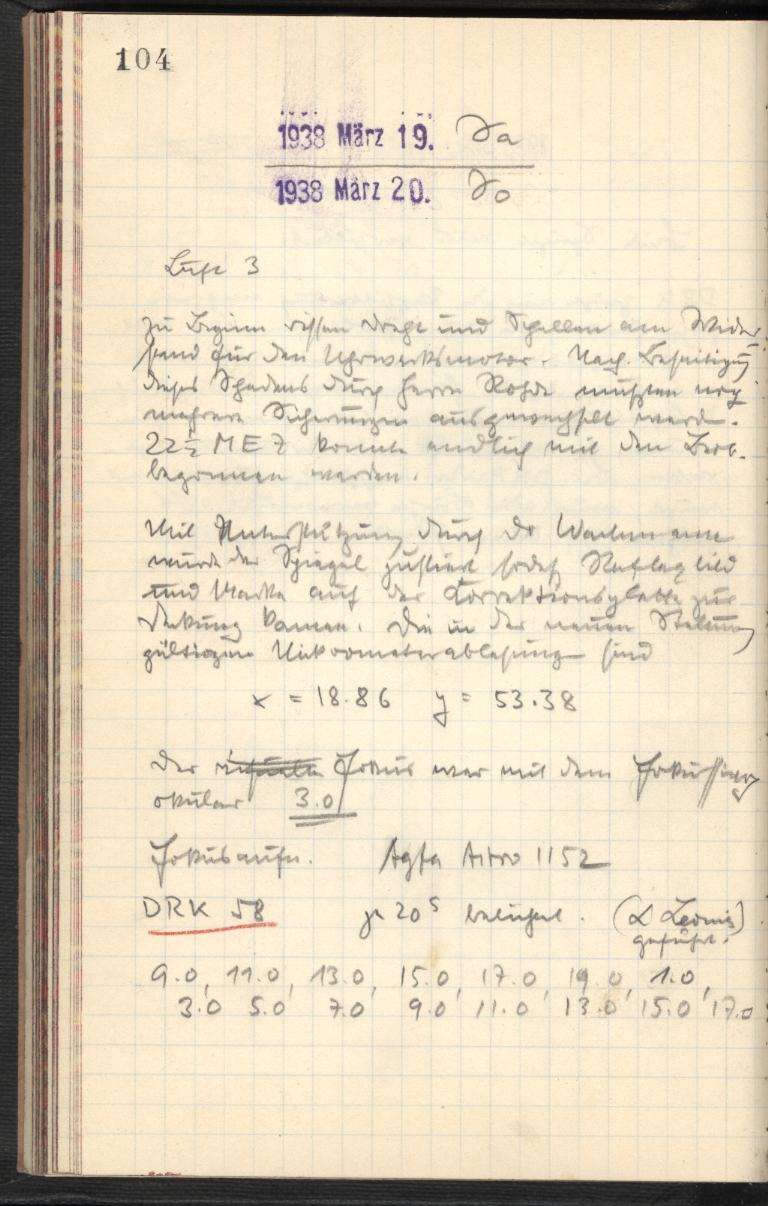 104
1938 März 19. Sa
1938 März 20. So
Luft 3
Zu Beginn rissen Draht und Schellen am Wider-
stand für den Uhrwerksmotor. Nach Beseitigung
dieses Schadens durch Herrn Rohde mußten noch
mehrere Sicherungen ausgewechselt werd.
22½ MEZ konnte endlich mit den Beob.
begonnen werden.
Mit Unterstützung durch Dr Wachmann
wurde der Spiegel justiert sodaß Reflexbild
und Marke auf der Korrektionsplatte zur
Deckung kamen. Die in der neuen Stellung
gültigen Mikrometerablesungen sind
x = 18.86 y = 53.38
Der Fokus war mit dem Fokussier
okular 3.0
Fokusaufn. Agfa Astro 1152
DRK 58 je 20ˢ belichtet. (α Leonis)
geführt.
9.0, 11.0, 13.0, 15.0, 17.0, 19.0, 1.0,
3.0 5.0 7.0 9.0 11.0 13.0 15.0 17.0